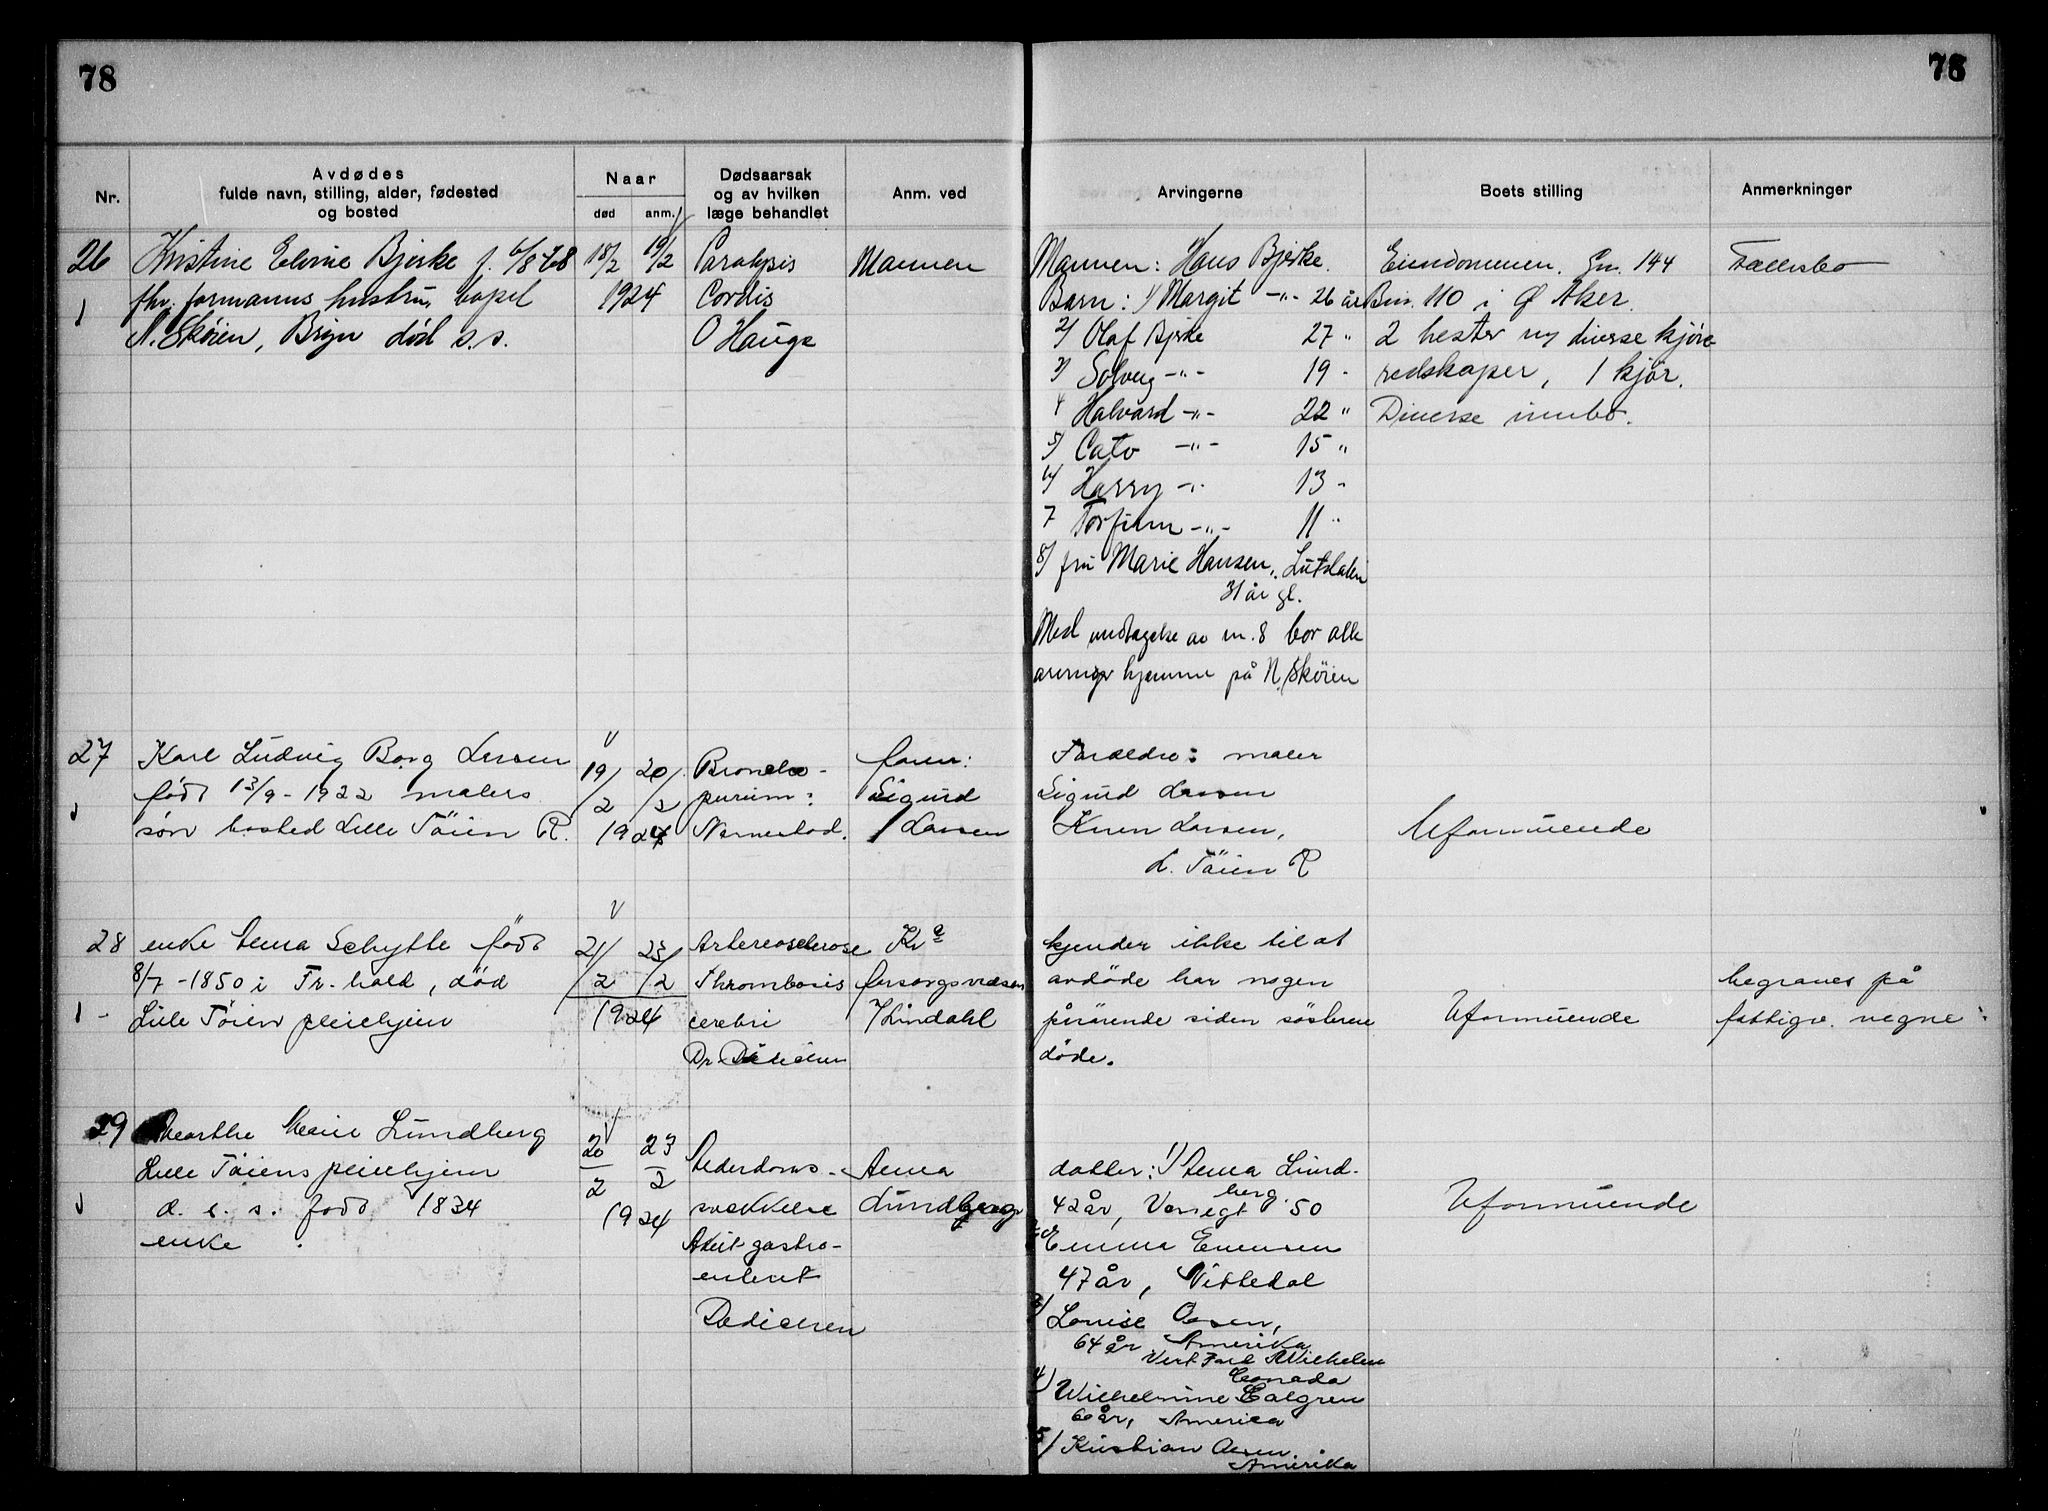 78
78
Nr.
Avdødes
fulde navn, stilling, alder, fødested
og bosted
Naar
død
anm.
Dødsaarsak
og av hvilken
læge behandlet
Anm. ved
Arvingerne
Boets stilling
Anmerkninger
26
Kristine Elvine Bjerke f. 6/8 68
fhv. formanns hustru, bopel
N. Skøien, Bryn død s.s.
18/2 19/2
1924
Paralysis
Cordis
O Hauge
Mannen
Mannen: Hans Bjerke.
Barn: 1/ Margit -"- 26 år
2/ Olaf Bjerke 27 "
3/ Solveig -"- 19 -
4 Halvard -"- 22 "
5/ Cato -"- 15 "
6/ Harry -"- 13 -
7 Torfinn -"- 11 "
8/ fru Marie Hansen,
31 år gl.
Med undtagelse av nr. 8 bor alle
arvinger hjemme på N. Skøien
Eiendommen. Gn. 144
Bnr. 110 i Ø Aker.
2 hester og diverse kjøre
redskaper, 1 kjør.
Diverse innbo.
Fællesbo
27
Karl Ludvig Borg Larsen
født 13/9 - 1922 malers
søn bosted Lille Töien R.
19/2 20/2
1924
Broncho-
pneum:
faren:
Sigurd
Larsen
Forældre: maler
Sigurd Larsen
Larsen,
L. Töien R
Uformuende
28
enke Anna Schytte født
8/7 - 1850 i Fr.hald, død
Lille Töien pleiehjem
21/2 23/2
1924
Arteriosclerose
Thrombosis
cerebri
Dr. Dedichen
Kr a
forsorgsvæsen
Lindahl
kjender ikke til at
avdöde har nogen
pårörende siden søsteren
döde.
Uformuende
begraves på
fattigv. regne:
29
Marthe Marie Lundberg
Lille Töiens pleiehjem
d. s. s. født 1834
enke
20/2 23/2
1924
Alderdoms-
svækkelse
Akut gastro-
enterit
Dedichen
Anna
Lundberg
datter: 1/ Anna Lund-
berg.
42 år, 50
2 Emma Evensen
47 år, Nittedal
3/ Louise Olsen,
64 år Amerika
Canada
4/ Wilhelmine
60 år, America
5/ Kristian Olsen
Amerika
Uformuende